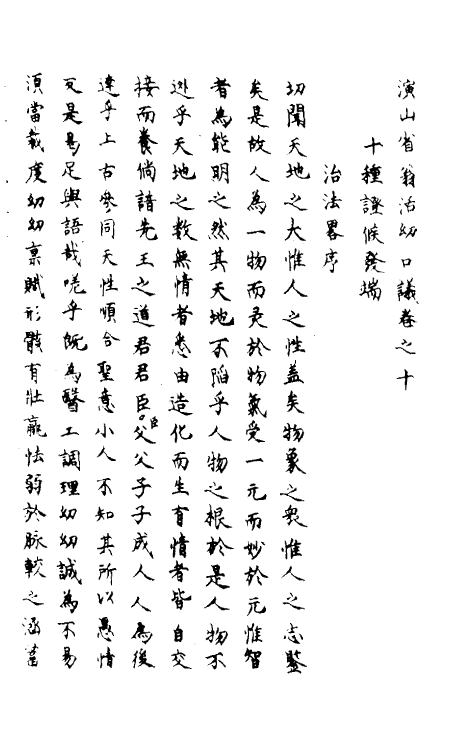 演山省翁活幼口議卷之十
十種證候發端
治法畧序
切聞天地之大惟人之性盖矣物象之衆惟人之志鑒
矣是故人為一物而灵於物氣受一元而妙於元惟智
者為能明之然其天地不陷乎人物之根於是人物不
逃乎天地之数無情者悉由造化而生有情者皆自交
接而養倘諳先王之道君君臣臣父父子子成人人為後
達乎上古參同天性順合聖意小人不知其所以愚情
又是曷足與語哉嗟乎既為醫工調理幼幼誠為不易
須當裁度幼幼禀賦形骸有壯羸怯弱於脉較之涵蓄